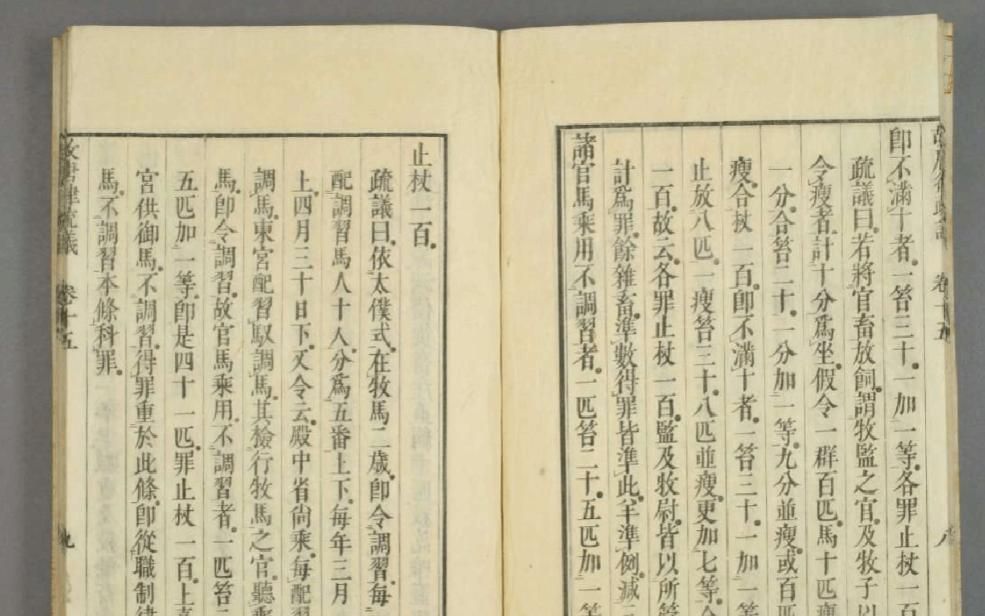 卷十五 八
卽不滿十者。一笞三十。一加一等。各罪止杖一百
疏議曰。若將官畜放飼。謂牧監之官。及牧子以
令瘦者。計十分爲坐。假令一群百匹。馬十匹瘦
一分。合笞二十。一分加一等。九分並瘦。或百匹
瘦。合杖一百。卽不滿十者。一笞三十。一加一等
止放八匹。一瘦笞三十。八匹並瘦。更加七等。合
一百。故云。各罪止杖一百。監及牧尉。皆以所管
計爲罪。餘雜畜。準數得罪。皆準此。羊準例。減三
諸官馬乘用不調習者。一匹笞二十。五匹加一等
止杖一百。
疏議曰。依太僕式。在牧馬二歲。卽令調習。每
配調習馬人十人。分爲五番上下。每年三月
上。四月三十日下。又令云。殿中省尙乘。每配習
調馬。東宮配習馭調馬。其檢行牧馬之官。聽乘
馬。卽令調習。故官馬乘用。不調習者。一匹笞二
五匹加一等。卽是四十一匹。罪止杖一百。上
宮供御馬。不調習。得罪重於此條。卽從職制律
馬。不調習本條科罪。
故唐律疏議 卷十五 九